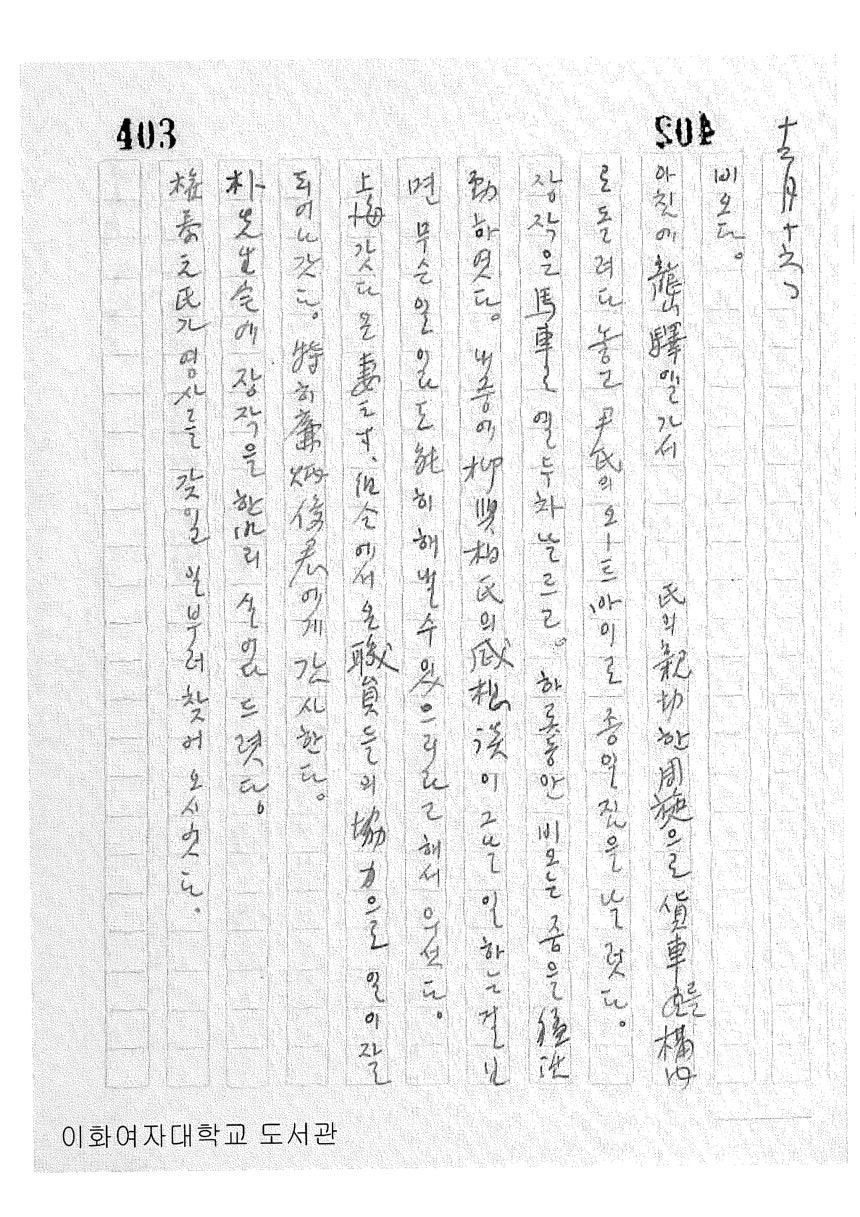 403
402
十二月十六日
비오다。
아침에 龍山驛엘 가서 氏의 親切한 周旋으로 貨車를 構內
로 돌려다 놓고 尹氏의 오ー트바이로 종일 짐을 날럿다。
장작을 馬車로 열두차 날르고。 하로동안 비오는 중을
動하엿다。 내종에 柳 氏의 感想談이 그날 일하는 걸 보
면 무슨 일일도 能히 해낼 수 있으리라고 해서 우섯다。
上海 갓다 온 妻 에서 온 職員들의 協力으로 일이 잘
되어 나갓다。 特히 廉 俊君에게 감사한다。
朴先生 에 장작을 한마리 실어 드렷다。
春 氏가 영사를 갖일 일부러 찾어 오시엇다。
이화여자대학교 도서관